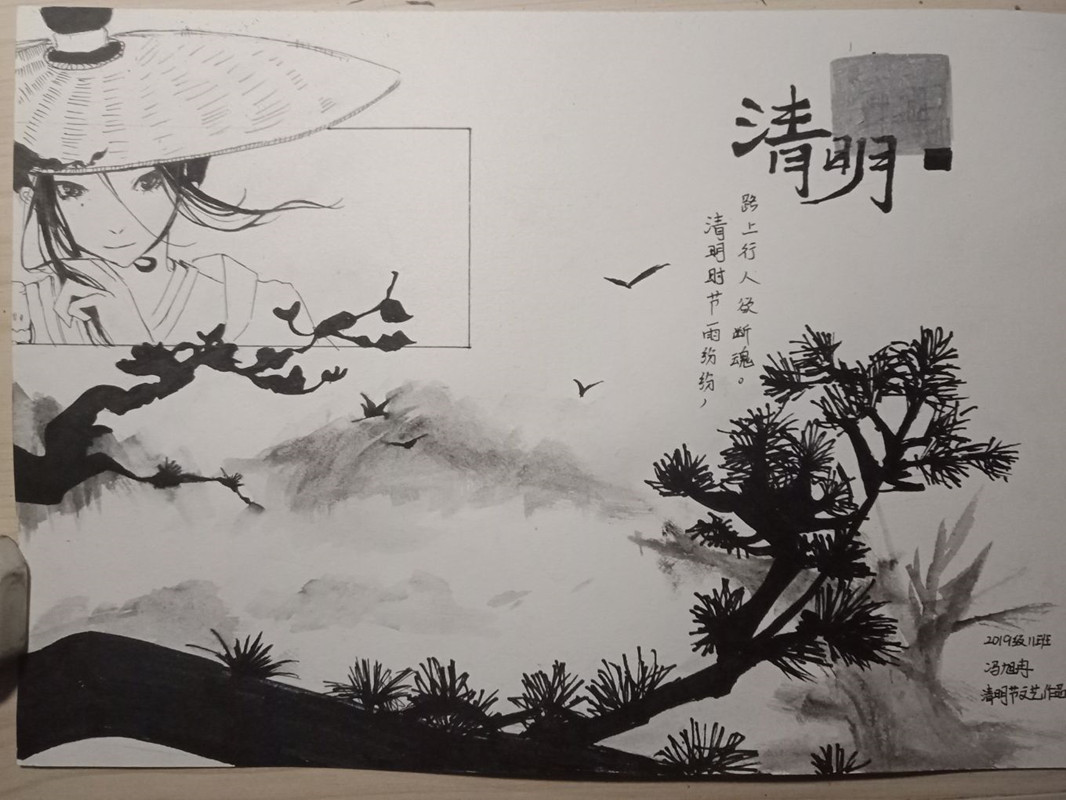 清明
清明时节雨纷纷，
路上行人欲断魂。
2019级11班
冯旭冉
清明节文艺作品